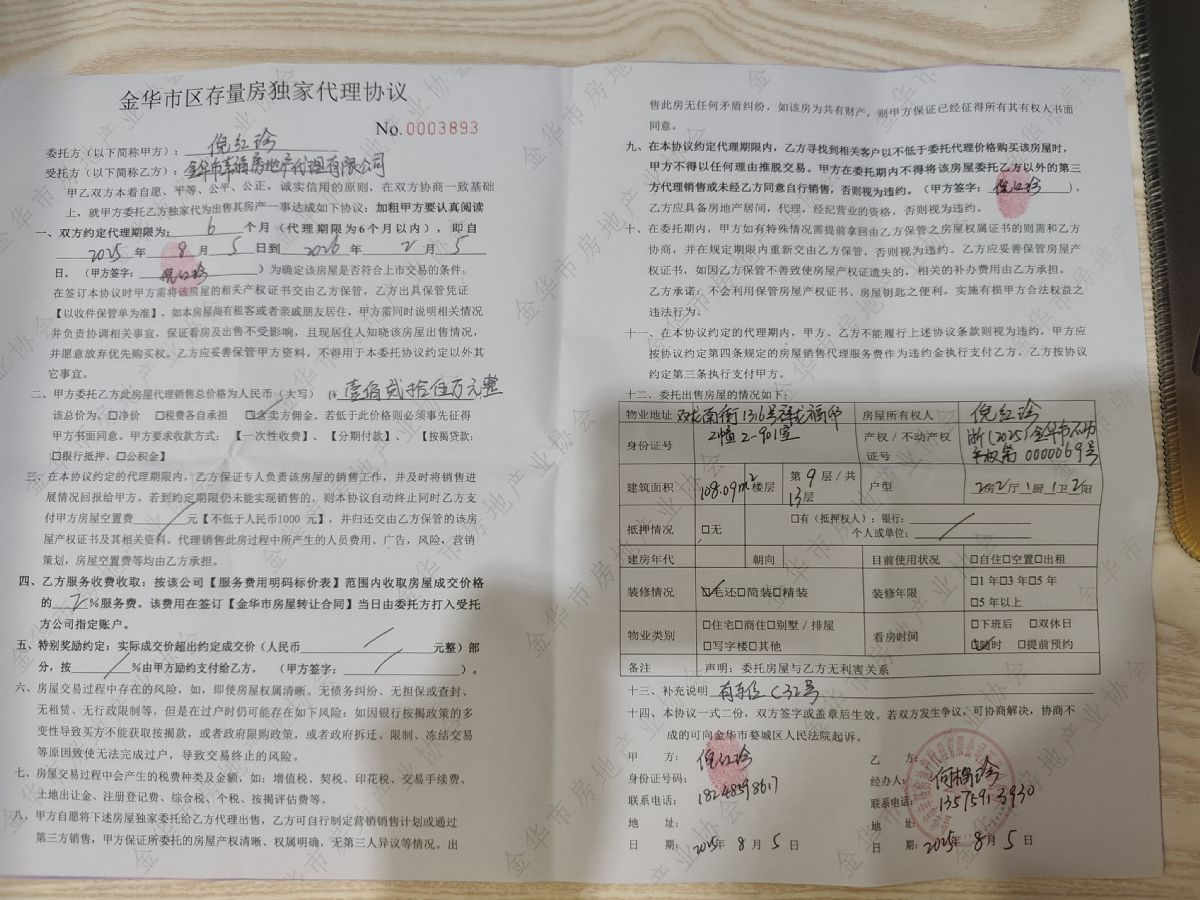 金华市区存量房独家代理协议
No.0003893
委托方（以下简称甲方）：倪红珍
受托方（以下简称乙方）：金华市幸福房地产代理有限公司
甲乙双方本着自愿、平等、公平、公正，诚实信用的原则，在双方协商一致基础
上，就甲方委托乙方独家代为出售其房产一事达成如下协议：加粗甲方要认真阅读
一、双方约定代理期限为：6个月（代理期限为6个月以内），即自
2025年8月5日到2026年2月5
日。（甲方签字：倪红珍）为确定该房屋是否符合上市交易的条件，
在签订本协议时甲方需将该房屋的相关产权证书交由乙方保管，乙方出具保管凭证
【以收件保管单为准】，如本房屋尚有租客或者亲戚朋友居住，甲方需同时说明相关情况
并负责协调相关事宜，保证看房及出售不受影响，且现居住人知晓该房屋出售情况，
并愿意放弃优先购买权。乙方应妥善保管甲方资料，不得用于本委托协议约定以外其
它事宜。
二、甲方委托乙方此房屋代理销售总价格为人民币（大写）（¥壹佰贰拾伍万元整
该总价为、□净价 □税费各自承担 ☑含卖方佣金。若低于此价格则必须事先征得
甲方书面同意。甲方要求收款方式：【一次性收费】、【分期付款】、【按揭贷款：
□银行抵押、□公积金】
三、在本协议约定的代理期限内，乙方保证专人负责该房屋的销售工作，并及时将销售进
展情况回报给甲方。若到约定期限仍未能实现销售的，则本协议自动终止同时乙方支
付甲方房屋空置费／元【不低于人民币1000 元】，并归还交由乙方保管的该房
屋产权证书及其相关资料。代理销售此房过程中所产生的人员费用、广告，风险，营销
策划，房屋空置费等均由乙方承担。
四、乙方服务收费收取：按该公司【服务费用明码标价表】范围内收取房屋成交价格
的2%服务费。该费用在签订【金华市房屋转让合同】当日由委托方打入受托
方公司指定账户。
五、特别奖励约定：实际成交价超出约定成交价（人民币／元整）部
分，按／%由甲方励约支付给乙方。（甲方签字：／）。
六、房屋交易过程中存在的风险，如，即使房屋权属清晰、无债务纠纷、无担保或查封、
无租赁、无行政限制等，但是在过户时仍可能存在如下风险：如因银行按揭政策的多
变性导致买方不能获取按揭款，或者政府限购政策，或者政府拆迁、限制、冻结交易
等原因致使无法完成过户，导致交易终止的风险。
七、房屋交易过程中会产生的税费种类及金额，如：增值税、契税、印花税、交易手续费、
土地出让金、注册登记费、综合税、个税、按揭评估费等。
八、甲方自愿将下述房屋独家委托给乙方代理出售，乙方可自行制定营销销售计划或通过
第三方销售，甲方保证所委托的房屋产权清晰、权属明确，无第三人异议等情况。出
售此房无任何矛盾纠纷，如该房为共有财产，则甲方保证已经征得所有其有权人书面
同意。
九、在本协议约定代理期限内，乙方寻找到相关客户以不低于委托代理价格购买该房屋时，
甲方不得以任何理由推脱交易。甲方在委托期内不得将该房屋委托乙方以外的第三
方代理销售或未经乙方同意自行销售，否则视为违约。（甲方签字：倪红珍），
乙方应具备房地产居间，代理，经纪营业的资格，否则视为违约。
十、在委托期内，甲方如有特殊情况需提前拿回由乙方保管之房屋权属证书的则需和乙方
协商，并在规定期限内重新交由乙方保管，否则视为违约。乙方应妥善保管房屋产
权证书，如因乙方保管不善致使房屋产权证遗失的，相关的补办费用由乙方承担。
乙方承诺：不会利用保管房屋产权证书、房屋钥匙之便利，实施有损甲方合法权益之
违法行为。
十一、在本协议约定的代理期内，甲方、乙方不能履行上述协议条款则视为违约。甲方应
按协议约定第四条规定的房屋销售代理服务费作为违约金执行支付乙方。乙方按协议
约定第三条执行支付甲方。
十二、委托出售房屋的情况如下：
物业地址 双龙南街1316号祥龙福邸2幢2-901室 房屋所有权人 倪红珍
身份证号 产权／不动产权证号 浙(2025)金华市不动产权第0000069号
建筑面积 108.09m² 楼层 第9层／共13层 户型 2房2厅1厨1卫2阳
抵押情况 □无 □有（抵押权人）：银行：
个人或单位：／
建房年代 朝向 目前使用状况 □自住□空置□出租
装修情况 ☑毛还□简装□精装 装修年限 □1年□3年□5年
□5年以上
物业类别 □住宅□商住□别墅／排屋
□写字楼□其他 看房时间 □下班后 □双休日
☑随时 □提前预约
备注 声明：委托房屋与乙方无利害关系
十三、补充说明 有车位C32号
十四、本协议一式二份，双方签字或盖章后生效。若双方发生争议，可协商解决，协商不
成的可向金华市婺城区人民法院起诉。
甲 方：倪红珍 乙 方：
身份证号码： 经办人：
联系电话：18248598617 联系电话：13575913930
地 址： 地 址：
日 期：2025年8月5日 日 期：2025年8月5日